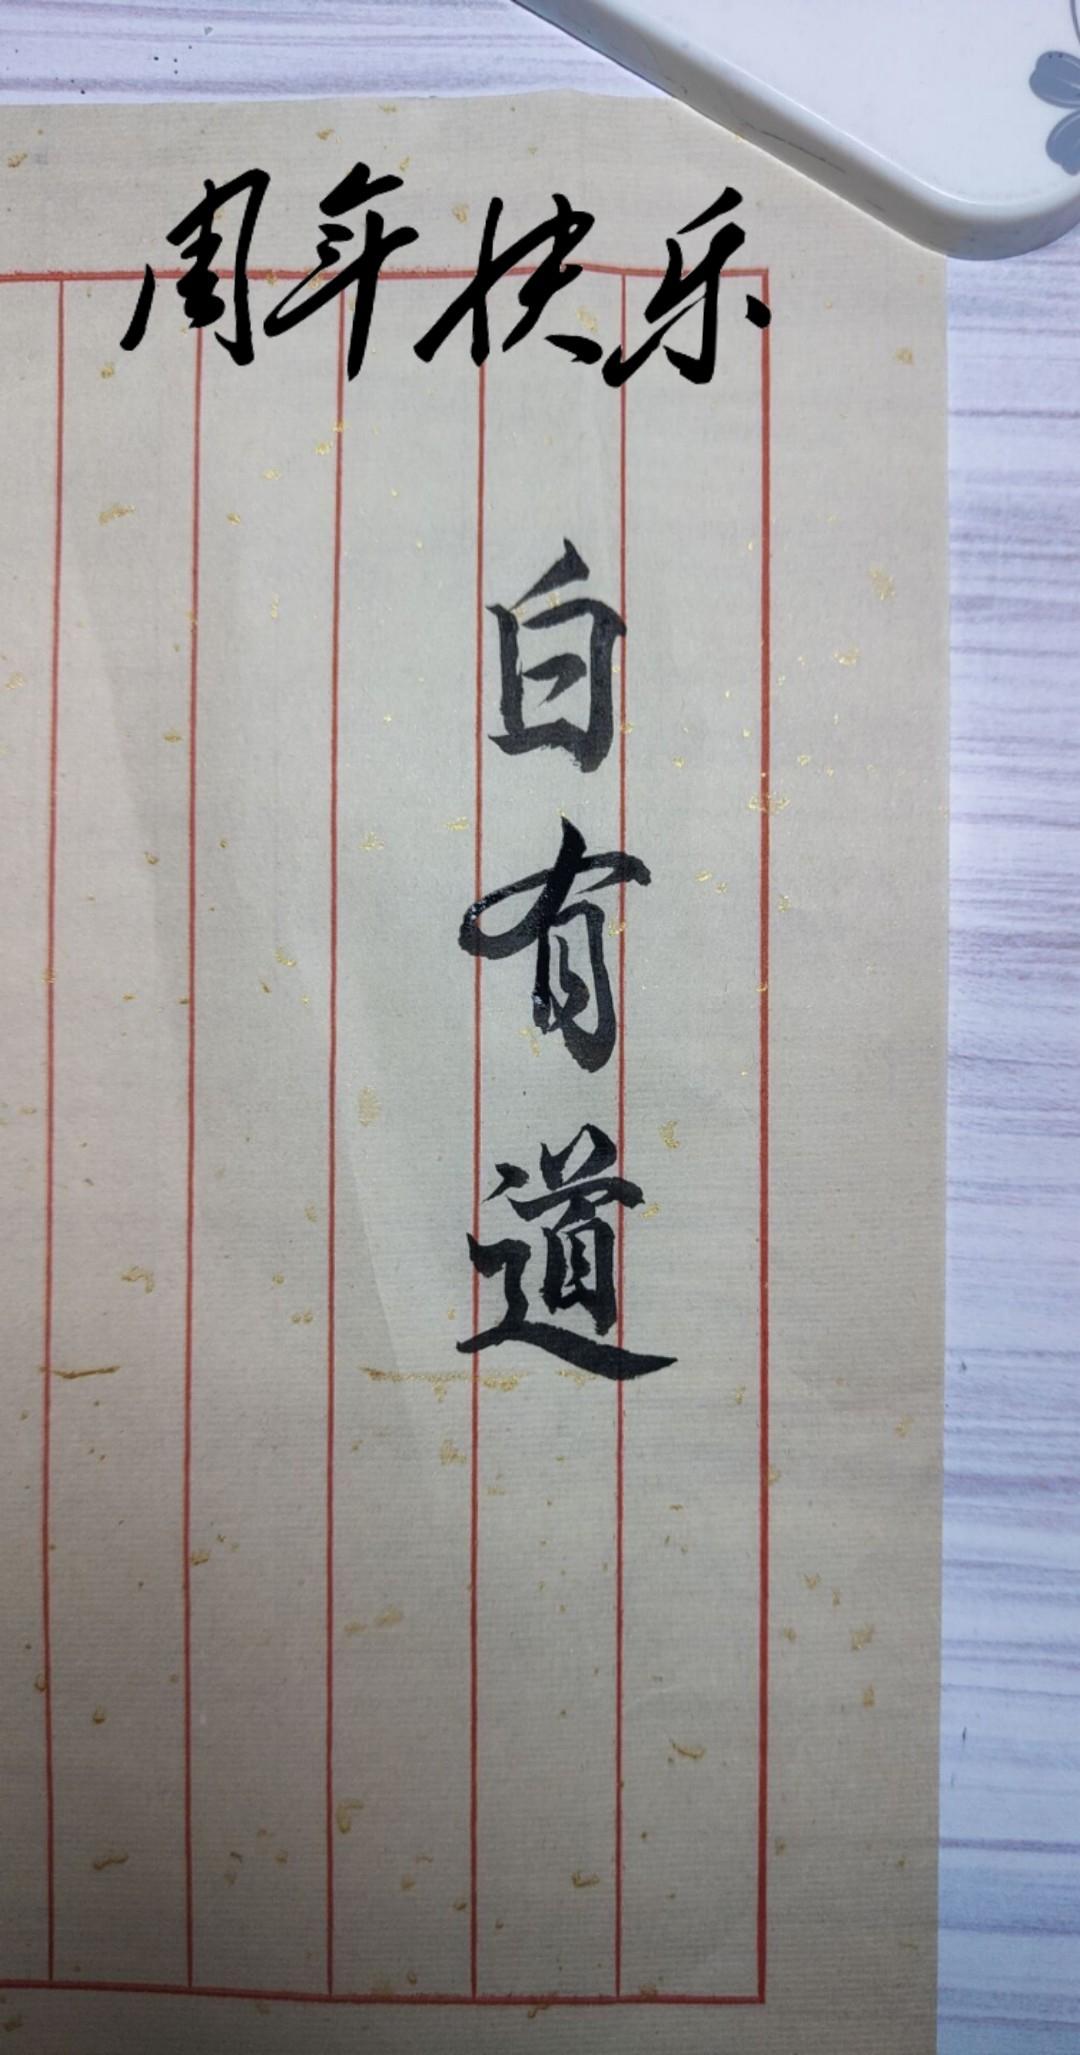 周年快乐
白有道